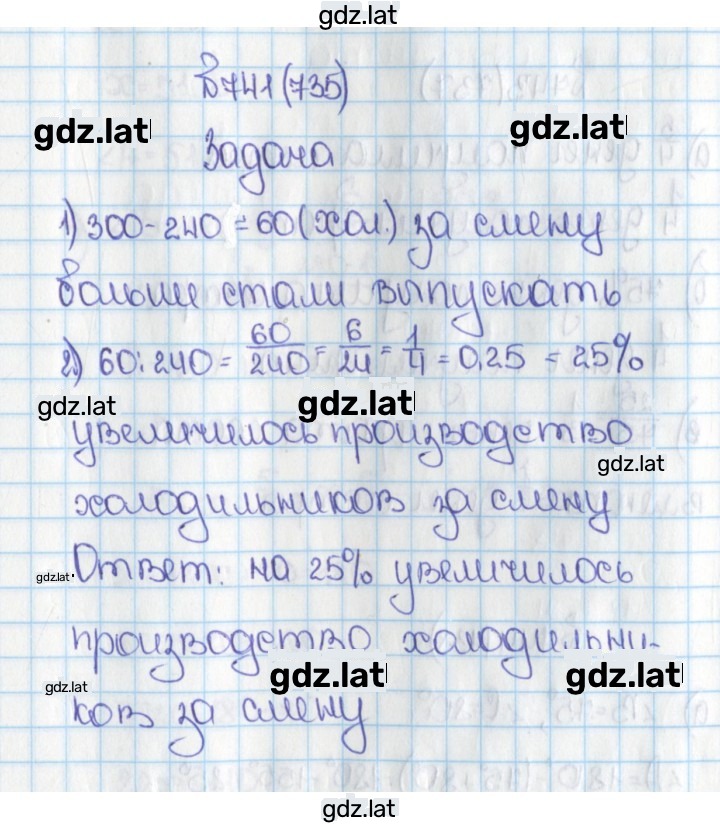 gdz.lat
в 741 (735)
gdz.lat
gdz.lat
Задача
1) 300 - 240 = 60 (хол.) за смену
больше стали выпускать
2) 60 : 240 = 60/240 = 6/24 = 1/4 = 0,25 = 25%
gdz.lat
gdz.lat
увеличилось производство
gdz.lat
холодильников за смену
gdz.lat
Ответ: на 25% увеличилось
производство холодильни-
gdz.lat
gdz.lat
gdz.lat
ков за смену
gdz.lat